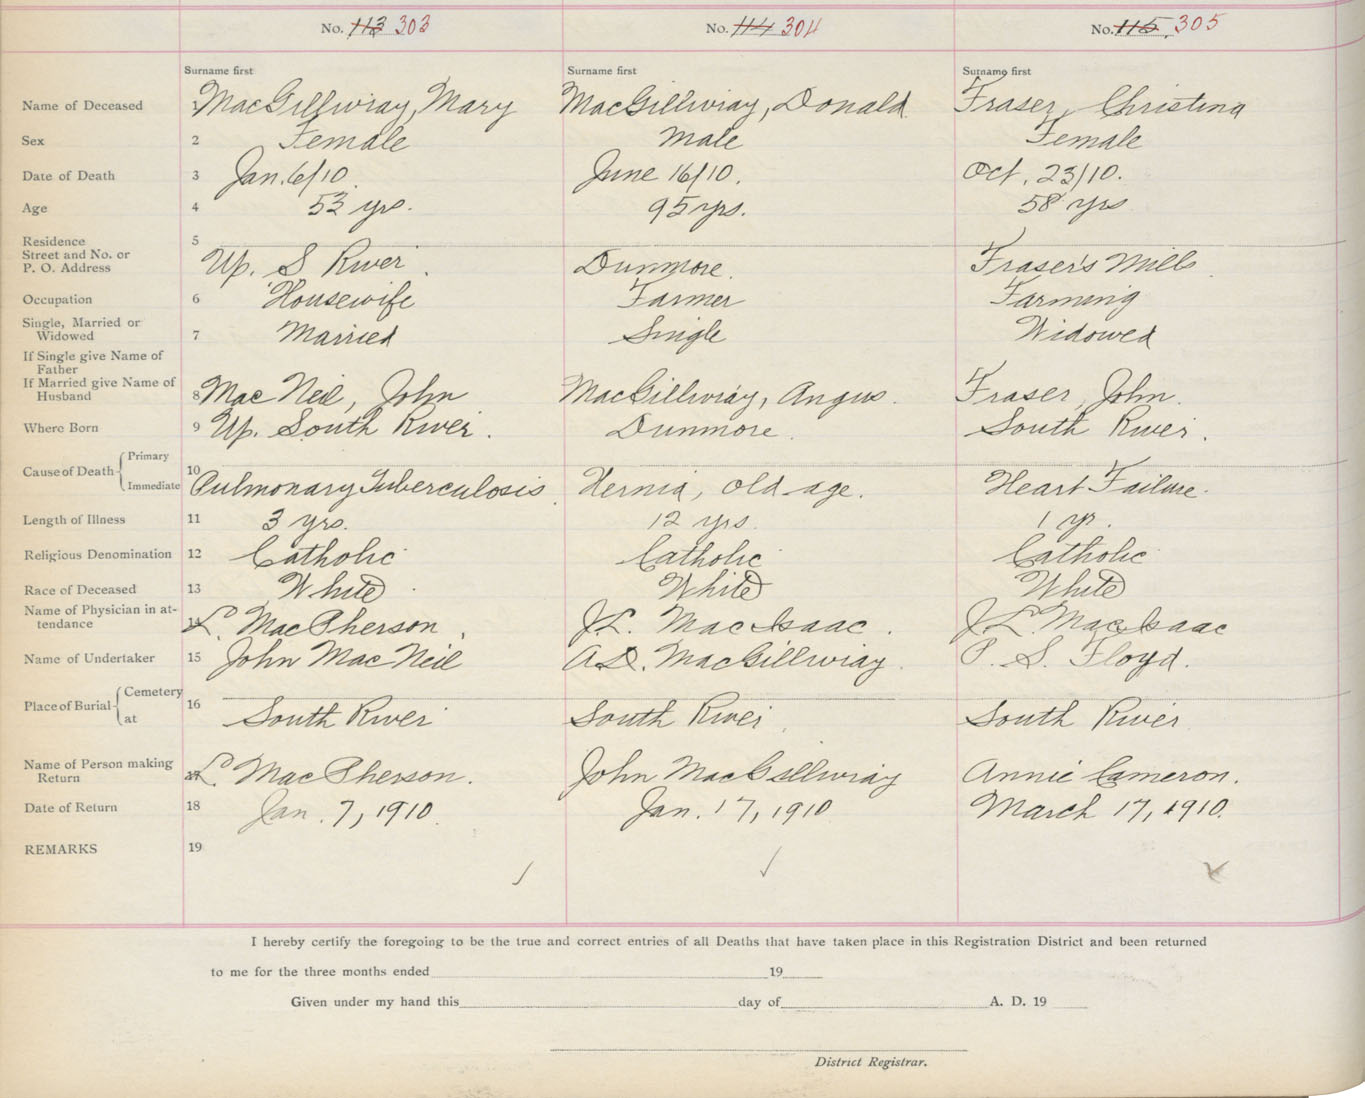 No. 113 303 No. 114 304 No. 115. 305
Surname first Surname first Surname first
Name of Deceased 1 MacGillivray, Mary MacGillivray, Donald Fraser, Christina
Sex 2 Female Male Female
Date of Death 3 Jan. 6/10. June 16/10. Oct. 23/10.
Age 4 53 yrs. 95 yrs. 58 yrs
Residence 5
Street and No. or
P. O. Address Up. S River. Dunmore. Fraser's Mills
Occupation 6 Housewife Farmer Farming
Single, Married or
Widowed 7 Married Single Widowed
If Single give Name of
Father
If Married give Name of
Husband 8 Mac Neil, John MacGillivray, Angus. Fraser, John.
Where Born 9 Up. South River. Dunmore. South River.
Cause of Death Primary 10
Immediate Pulmonary Tuberculosis. Hernia, old-age. Heart Failure.
Length of Illness 11 3 yrs. 12 yrs. 1 yr.
Religious Denomination 12 Catholic Catholic Catholic
Race of Deceased 13 White White White
Name of Physician in at-
tendance 14 L. MacPherson, J.L. MacIsaac. J.L. MacIsaac
Name of Undertaker 15 John MacNeil A.D. MacGillivray. P. S. Floyd.
Place of Burial Cemetery 16
at South River South River South River
Name of Person making
Return 17 L. MacPherson. John MacGillivray Annie Cameron.
Date of Return 18 Jan. 7, 1910. Jan. 17, 1910 March 17, 1910.
REMARKS 19
I hereby certify the foregoing to be the true and correct entries of all Deaths that have taken place in this Registration District and been returned
to me for the three months ended 19
Given under my hand this day of A. D. 19
District Registrar.